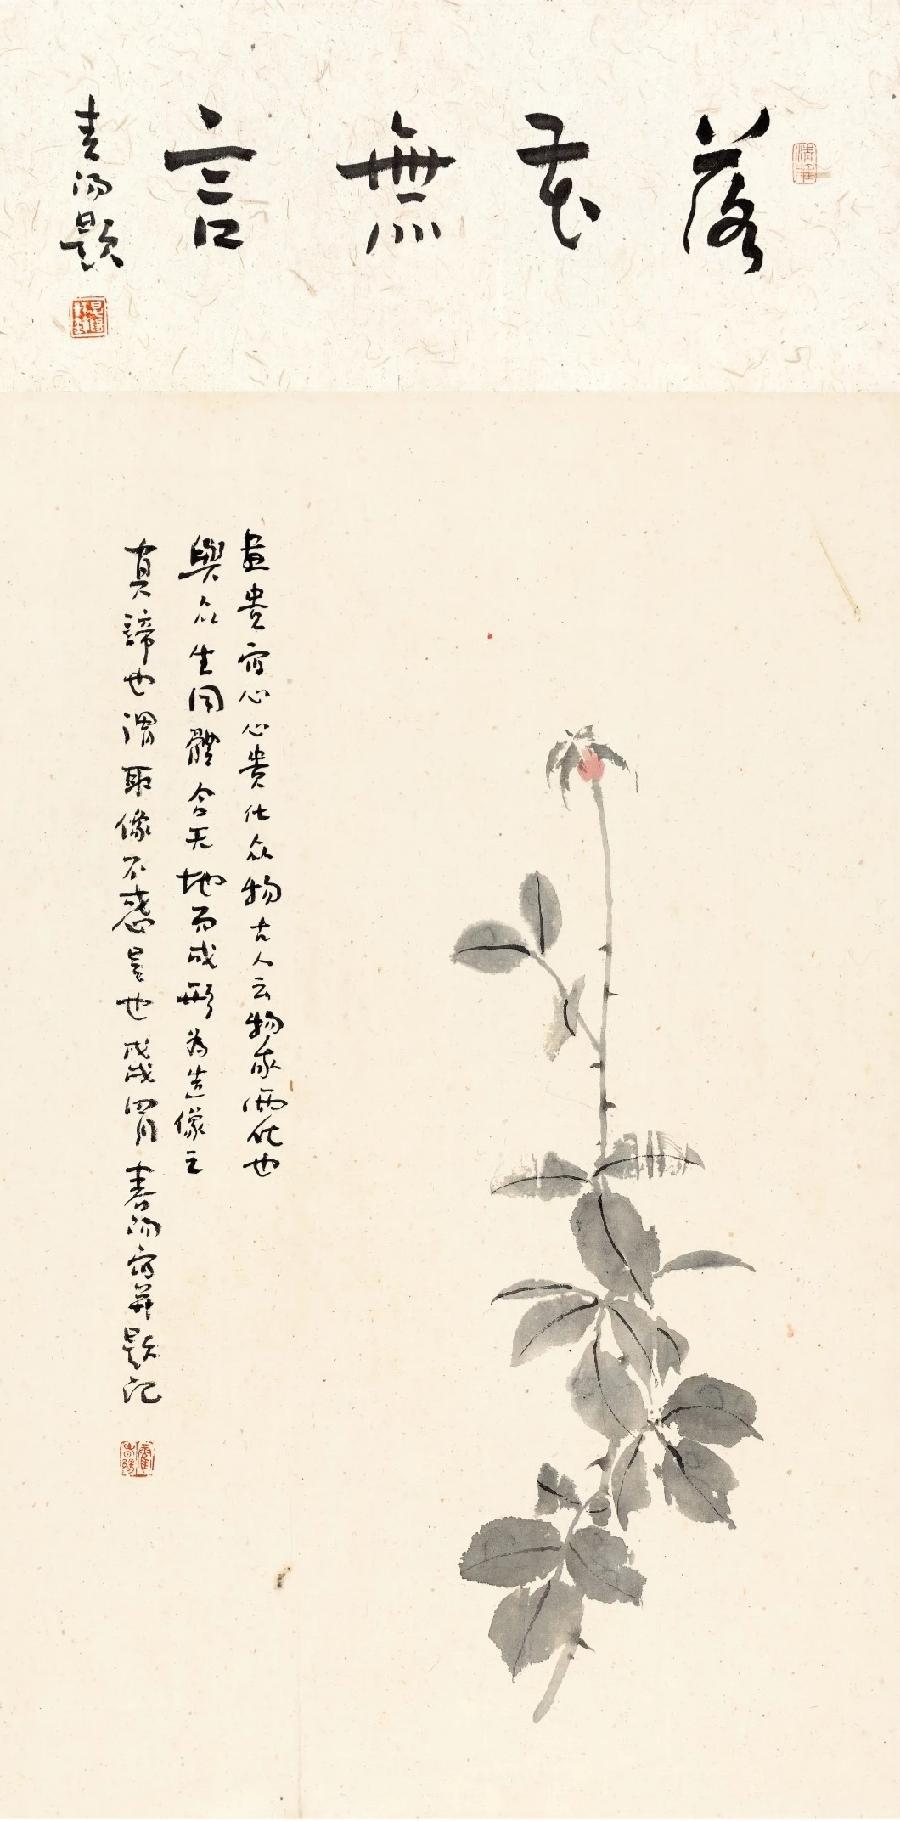 落花無言
春陽題
畫貴寫心心貴化众物古人云物我兩化也
與众生同體合天地而成形為造像之
真諦也謂取像不惑是也戊戌四月春陽寫并題記